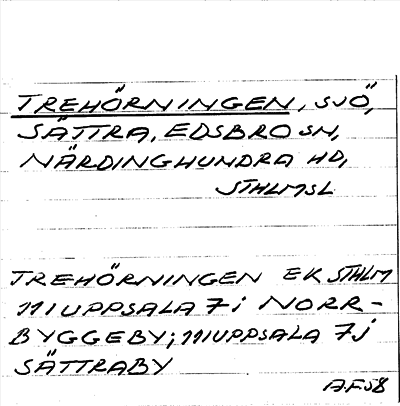 TREHÖRNINGEN, SJÖ,
SÄTTRA, EDSBRO SN,
NÄRDINGHUNDRA HD,
STHLMSL
TREHÖRNINGEN EK STHLM
111 UPPSALA 7 i NORR-
BYGGEBY; 111 UPPSALA 7 j
SÄTTRABY
A.F. 58